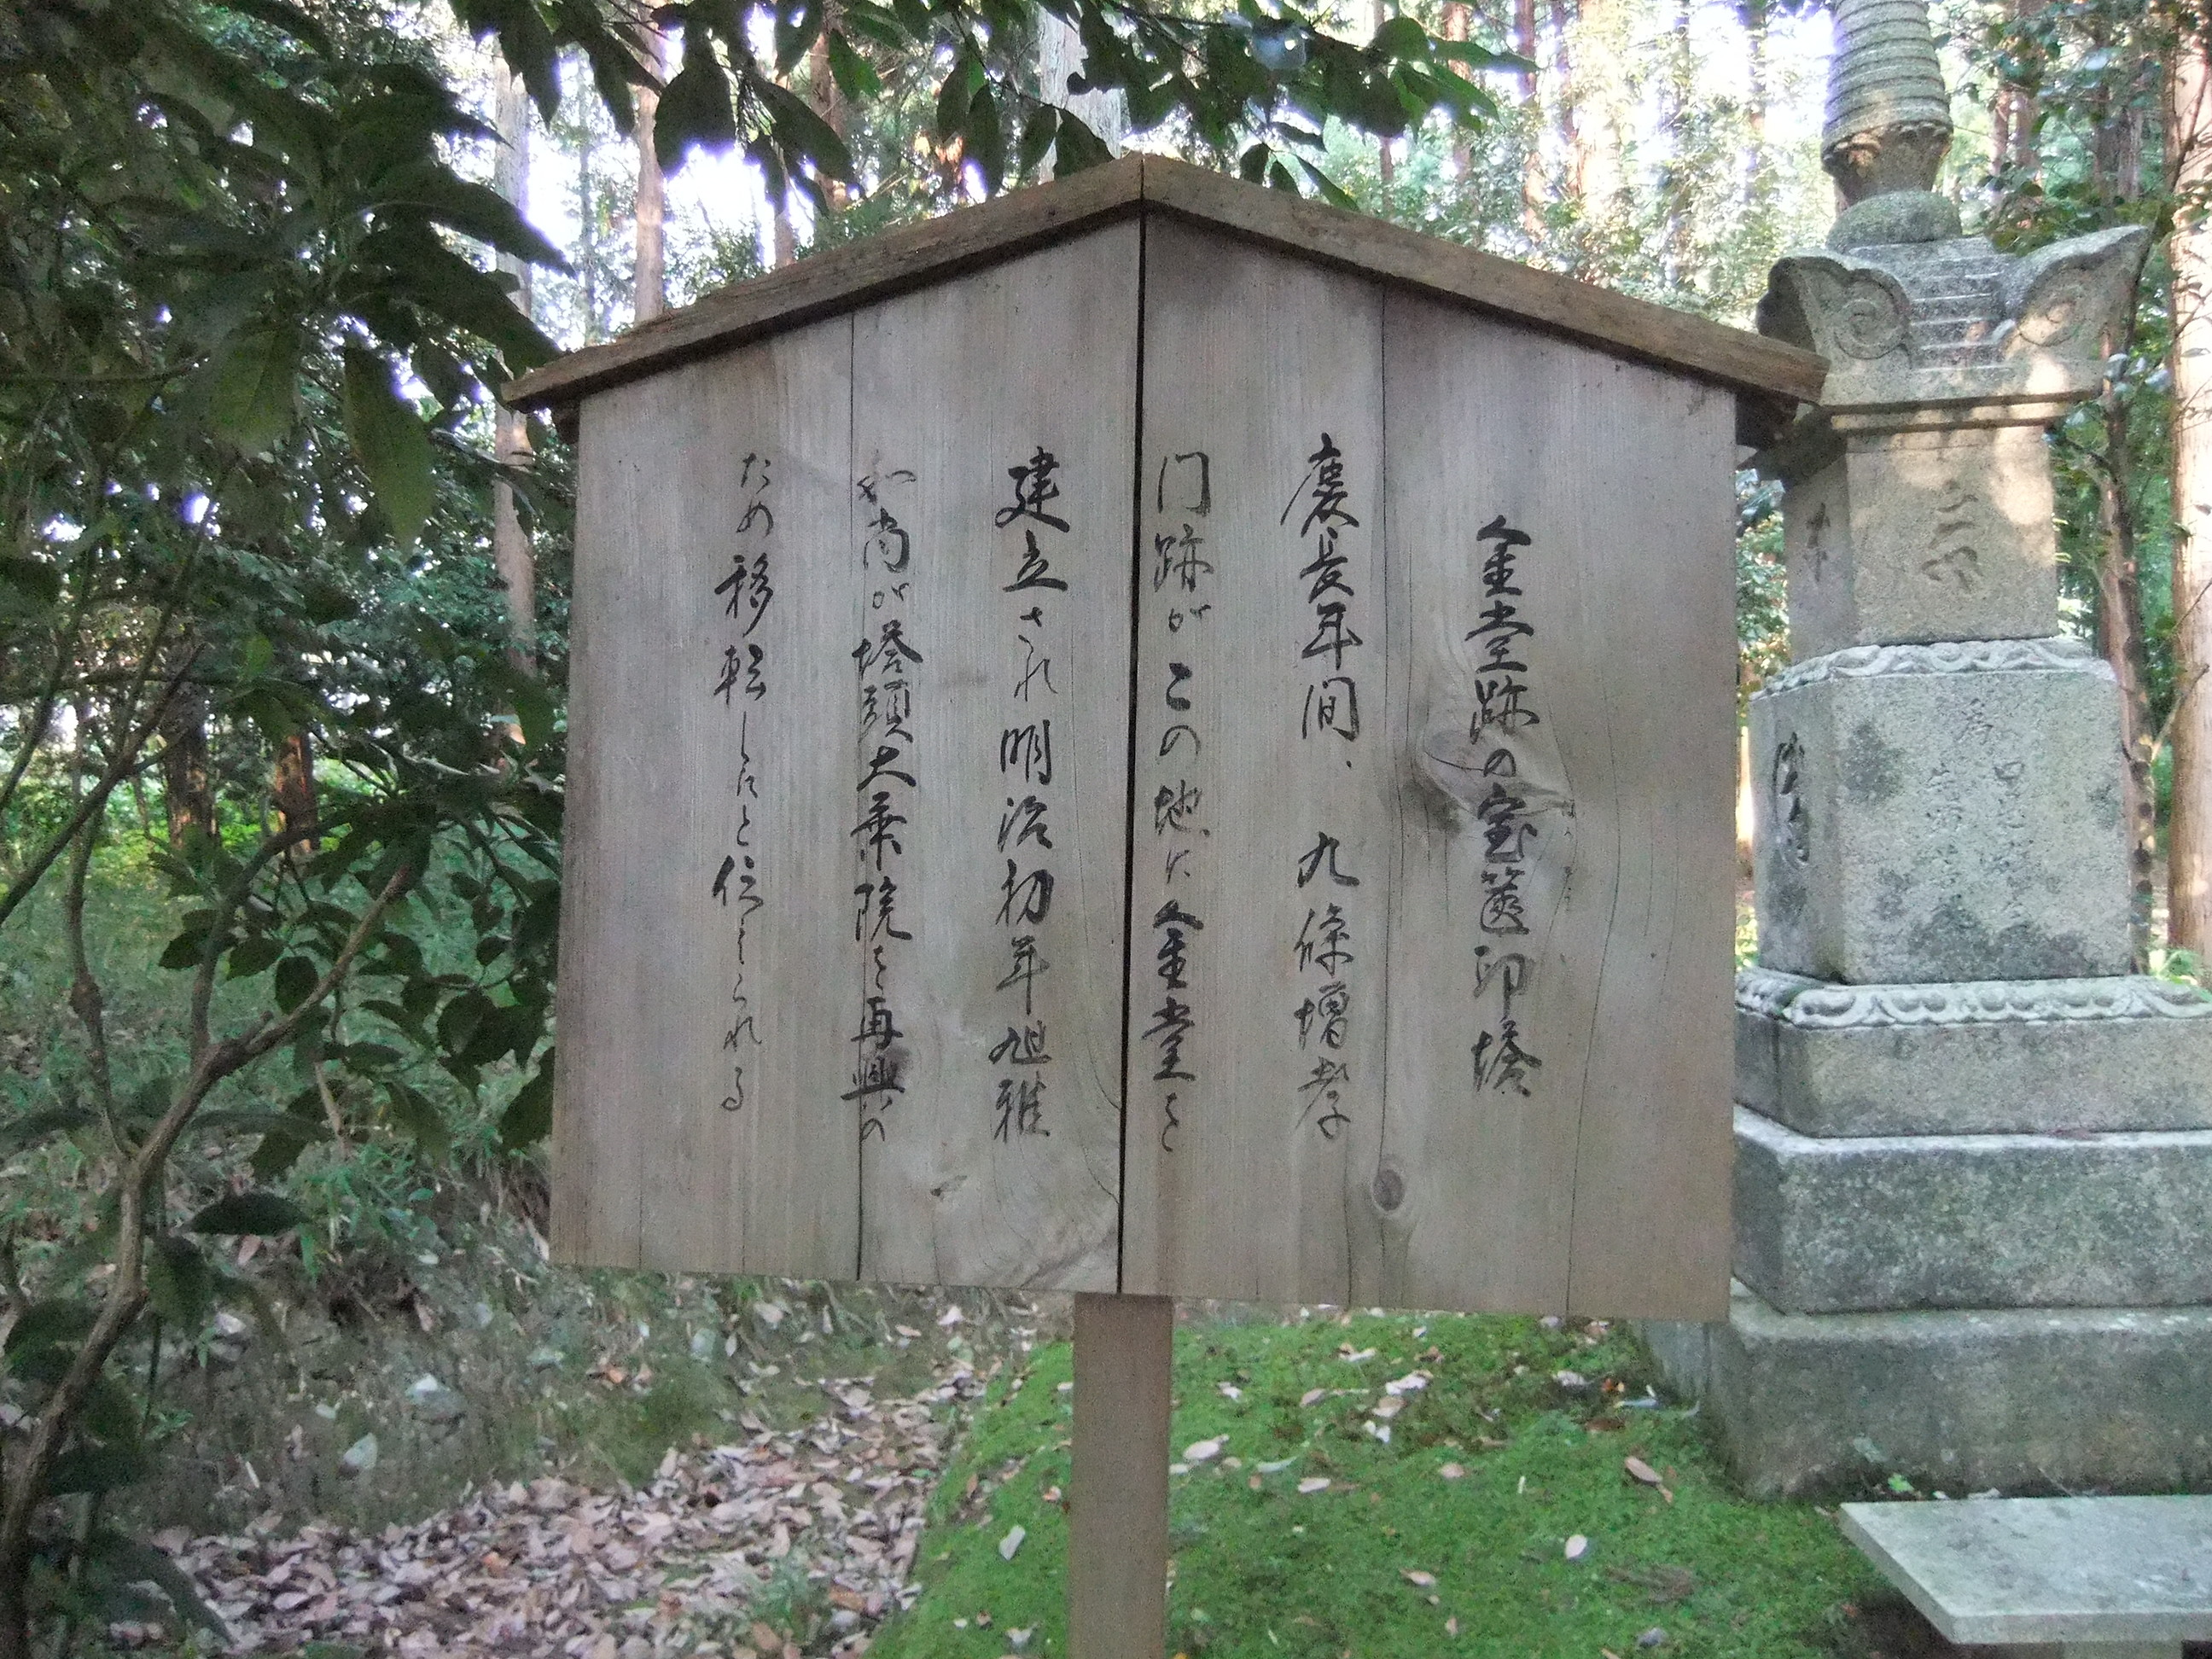 金堂跡の宝篋印塔
慶長年間、九條増孝
门跡がこの地に金堂を
建立され明治初年旭雅
和尚が塔頭大乗院を再興の
ため移転したと伝えられる